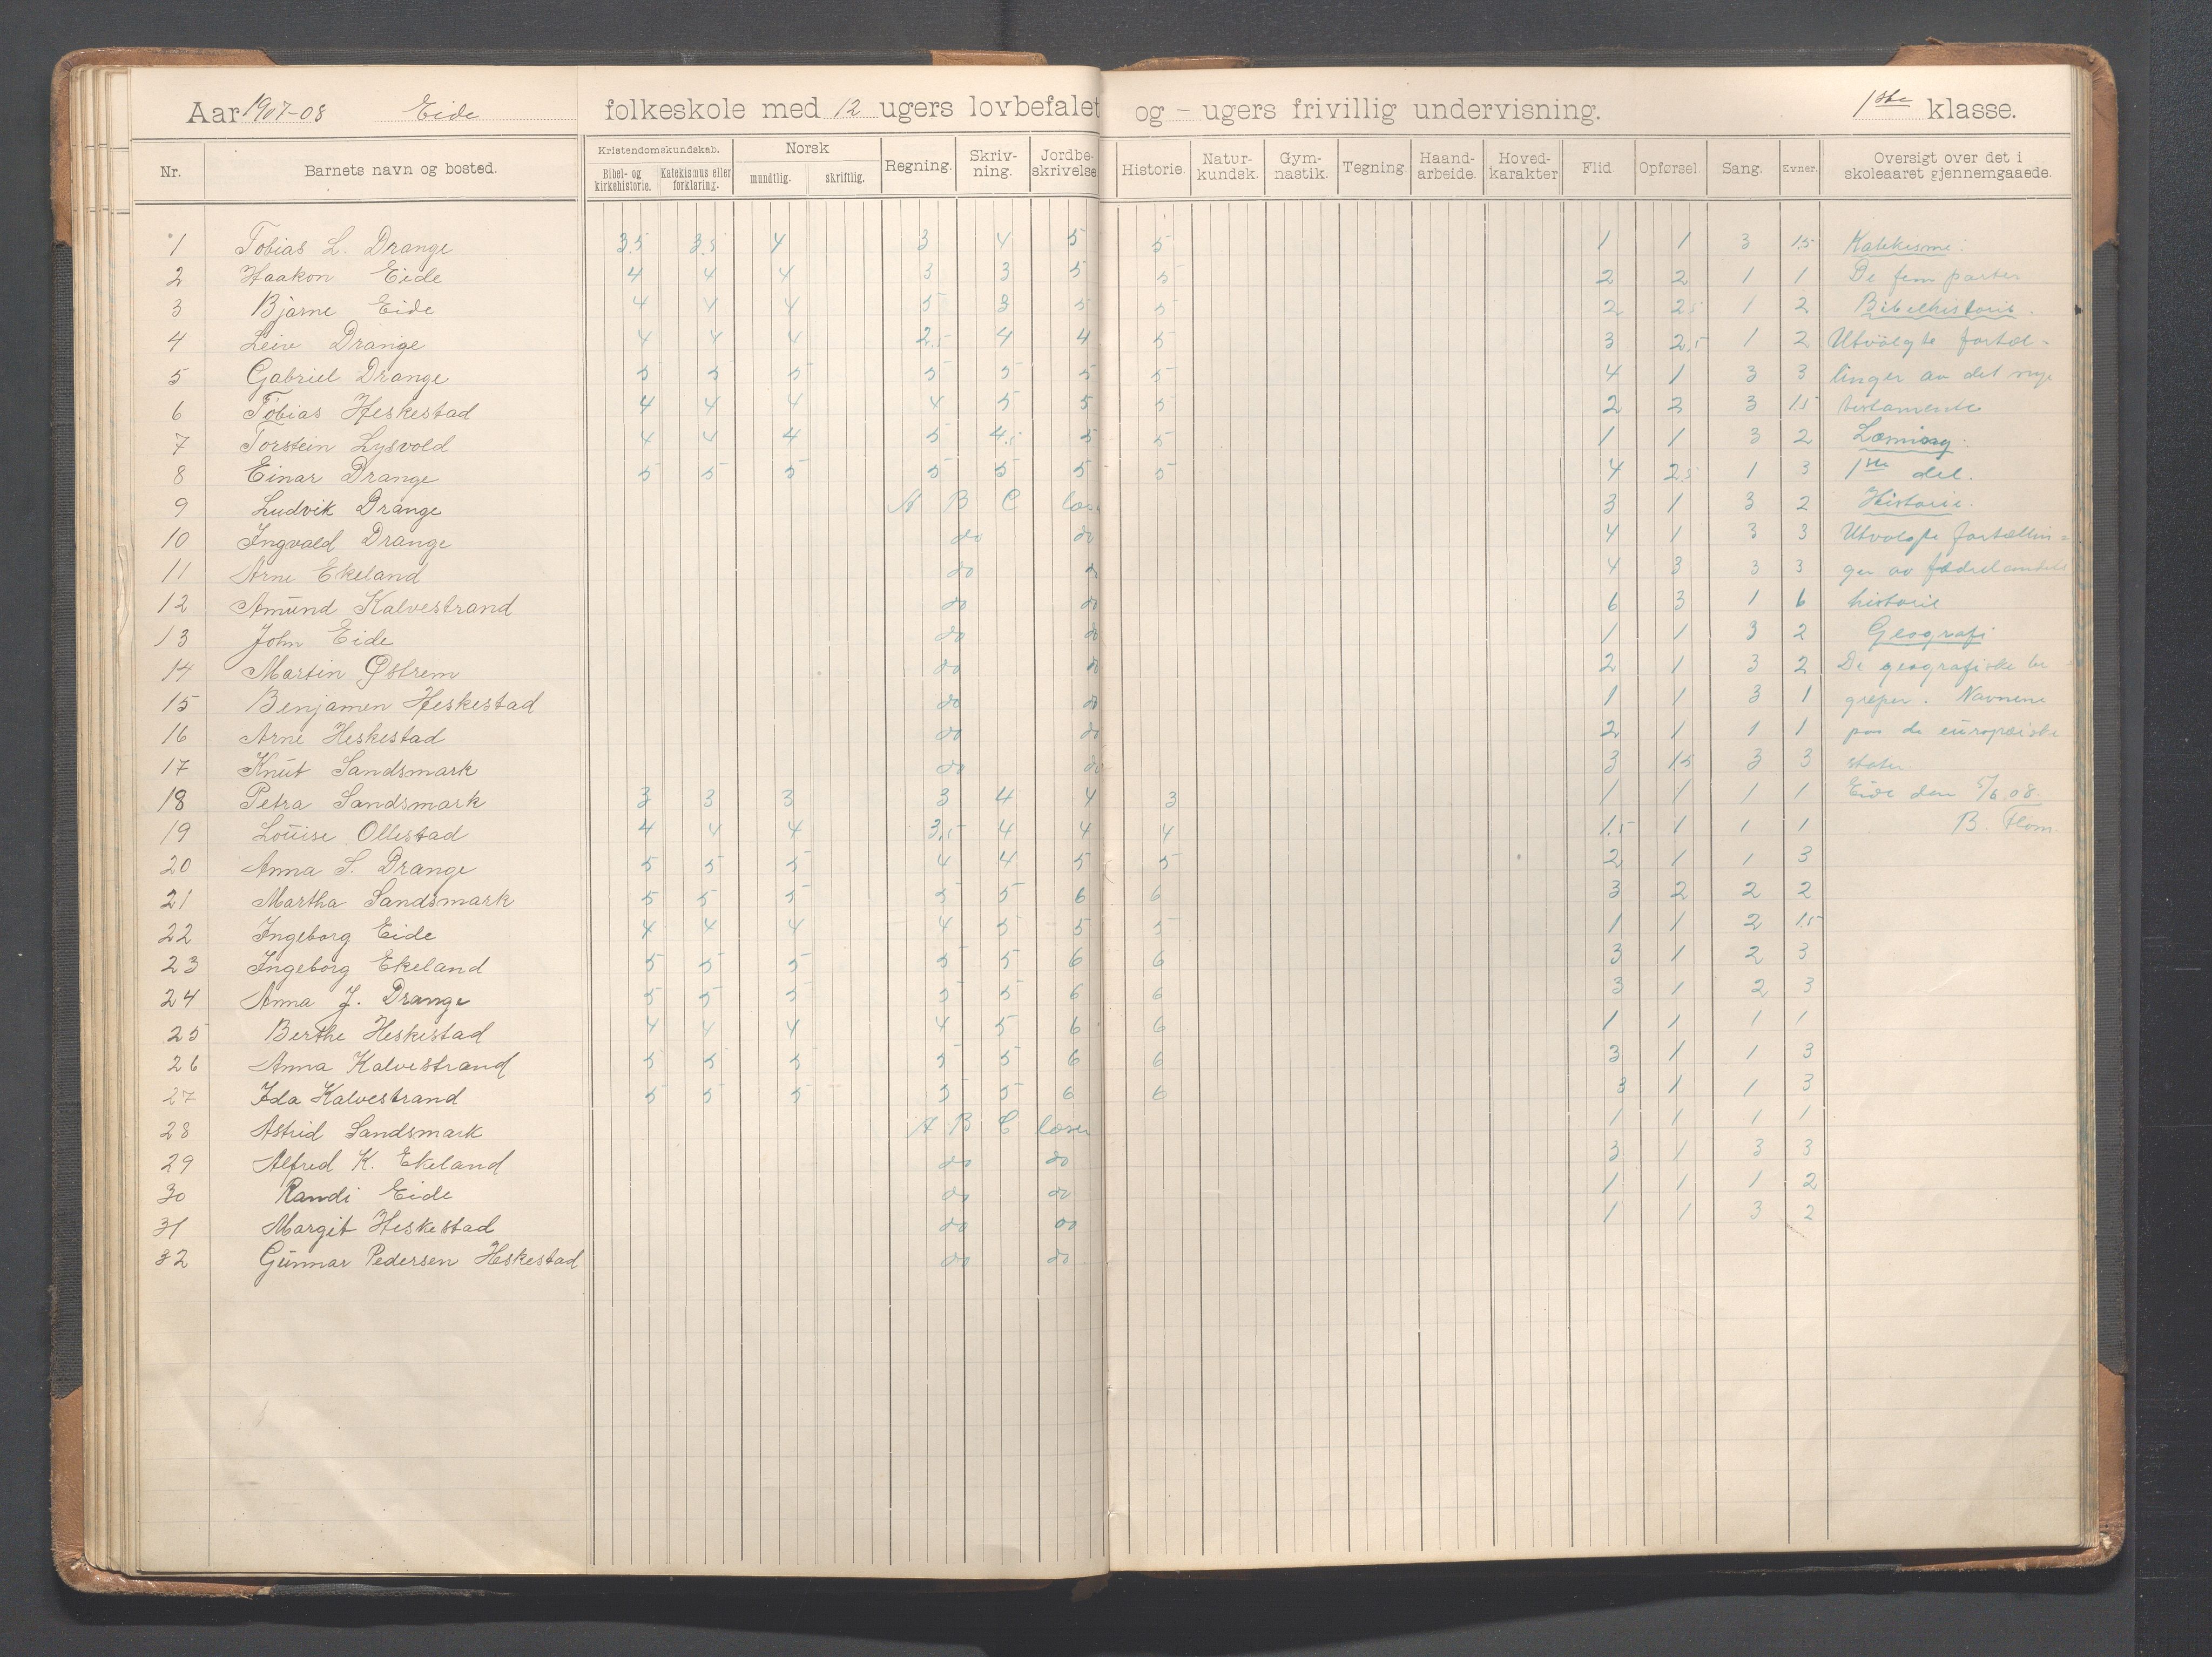 Aar 1907-08 Eide folkeskole med 12 ugers lovbefalet og - ugers frivillig undervisning. 1ste klasse.
Nr. Barnets navn og bosted. Kristendomskundskab. Bibel- og kirkehistorie. Katekismus eller forklaring. Norsk mundtlig. skriftlig. Regning. Skriv-ning. Jordbe-skrivelse Historie. Natur-kundsk. Gym-nastik. Tegning Haand-arbeide. Hoved-karakter Flid Opførsel. Sang. Evner. Oversigt over det i skoleaaret gjennemgaaede.
1 Tobias L. Drange 3.5 3.5 4 3 4 5 5 1 1 3 1.5 Katekisme:
2 Haakon Eide 4 4 4 3 3 5 5 2 2 1 1 De fem parter
3 Bjarne Eide 4 4 4 5 3 5 5 2 2.5 1 2 Bibelhistorie.
4 Leiv Drange 4 4 4 2.5 4 4 5 3 2.5 1 2 Utvalgte fortæl-
5 Gabriel Drange 5 5 5 5 5 5 5 4 1 3 3 linger av det nye
6 Tobias Heskestad 4 4 4 4 5 5 5 2 2 3 1.5 testamente
7 Torstein Lysvold 4 4 4 5 4.5 5 5 1 1 3 2
8 Einar Drange 5 5 5 5 5 5 5 4 2.5 1 3 1ste del.
9 Ludvik Drange A B C læser 3 1 3 2 Historie.
10 Ingvald Drange do do 4 1 3 3 Utvalgte fortællin=
11 Arne Ekeland do do 4 3 3 3 ger av fædrelandets
12 Amund Kalvestrand do do 6 3 1 6 historie
13 John Eide do do 1 1 3 2 Geografi
14 Martin Østrem do do 2 1 3 2 De geografiske be=
15 Benjamen Heskestad do do 1 1 3 1 greper. Navnene
16 Arne Heskestad do do 2 1 1 1 paa de europæiske
17 Knut Sandsmark do do 3 1.5 3 3 stater.
18 Petra Sandsmark 3 3 3 3 4 4 3 1 1 1 1 Eide den 5/6 08
19 Louise Ollestad 4 4 4 3.5 4 4 4 1.5 1 1 1 B. Flom.
20 Anna S. Drange 5 5 5 4 4 5 5 2 1 1 3
21 Martha Sandsmark 5 5 5 5 5 6 6 3 2 2 2
22 Ingeborg Eide 4 4 4 4 5 5 5 1 1 2 1.5
23 Ingeborg Ekeland 5 5 5 5 5 6 6 3 1 2 3
24 Anna J. Drange 5 5 5 5 5 6 6 3 1 2 3
25 Berthe Heskestad 4 4 4 4 5 6 6 1 1 1 1
26 Anna Kalvestrand 5 5 5 5 5 6 6 3 1 1 3
27 Ida Kalvestrand 5 5 5 5 5 6 6 3 1 1 3
28 Astrid Sandsmark A B C læser 1 1 1 1
29 Alfred K. Ekeland do do 3 1 3 3
30 Randi Eide do do 1 1 1 2
31 Margit Heskestad do do 1 1 3 2
32 Gunnar Pedersen Heskestad do do